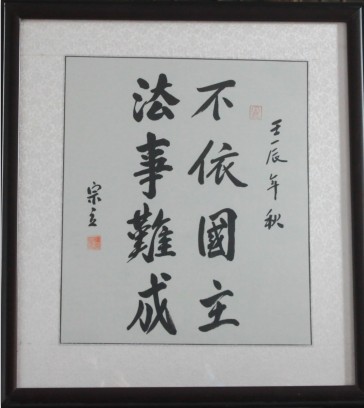 壬辰年秋
不依國主
法事難成
宗立